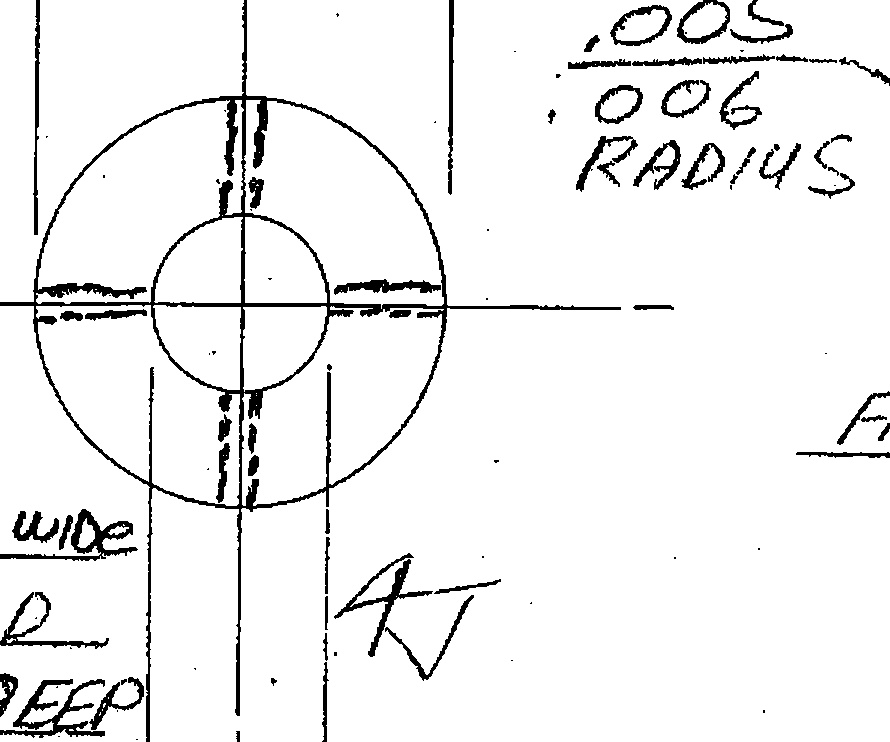 .005
.006
RADIUS
WIDE
DEEP
4